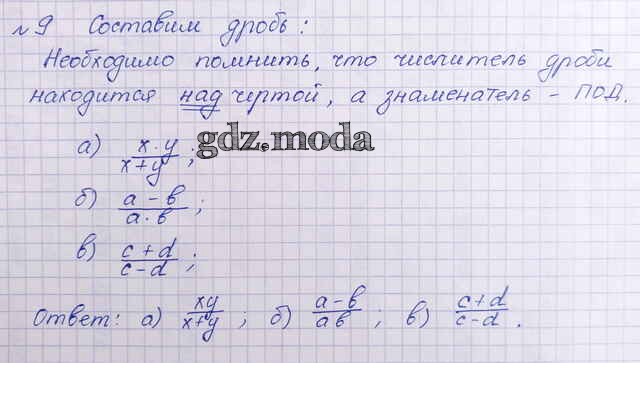 № 9 Составим дробь:
Необходимо помнить, что числитель дроби
находится над чертой, а знаменатель - ПОД.
а) x · y / x + y ;
gdz.moda
б) a - b / a · b ;
в) c + d / c - d ;
Ответ: а) xy / x+y ; б) a-b / ab ; в) c+d / c-d .